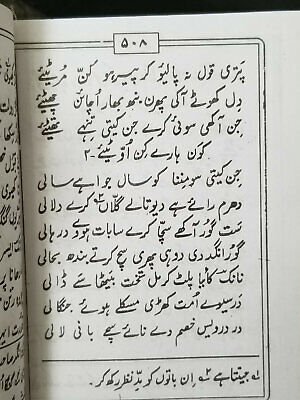 ۵۰۸
پتری قول نہ پالیو کر پیر ہو کنّ مرٹیئے
دِل کھوٹے آکی پھرن بنھ بھار اُچائن چھٹیئے
جن آکھی سوئی کرے جن کیتی تنہے تھٹیئے
کون ہارے کِن اُوٹیئے ۲۔
جن کیتی سو مننا کو سال جواہے سالی
دھرم رائے ہے دیوتا لے گلّاں کرے دلالی
ست گور آکھے سچّا کرے سا بات ہووے در حالی
گور انگد دی دوہی پھری سچ کرتے بندھ بحالی
نانک کایا پلٹ کر مل تخت بیٹھا سے ڈالی
در سیوے اُمت کھڑی مسکلے ہوئے جنگالی
در درویس خصم دے نائے سچے بانی لالی
جیتتا ہے ۲ اِن باتوں کو مدِّ نظر رکھ کر۔